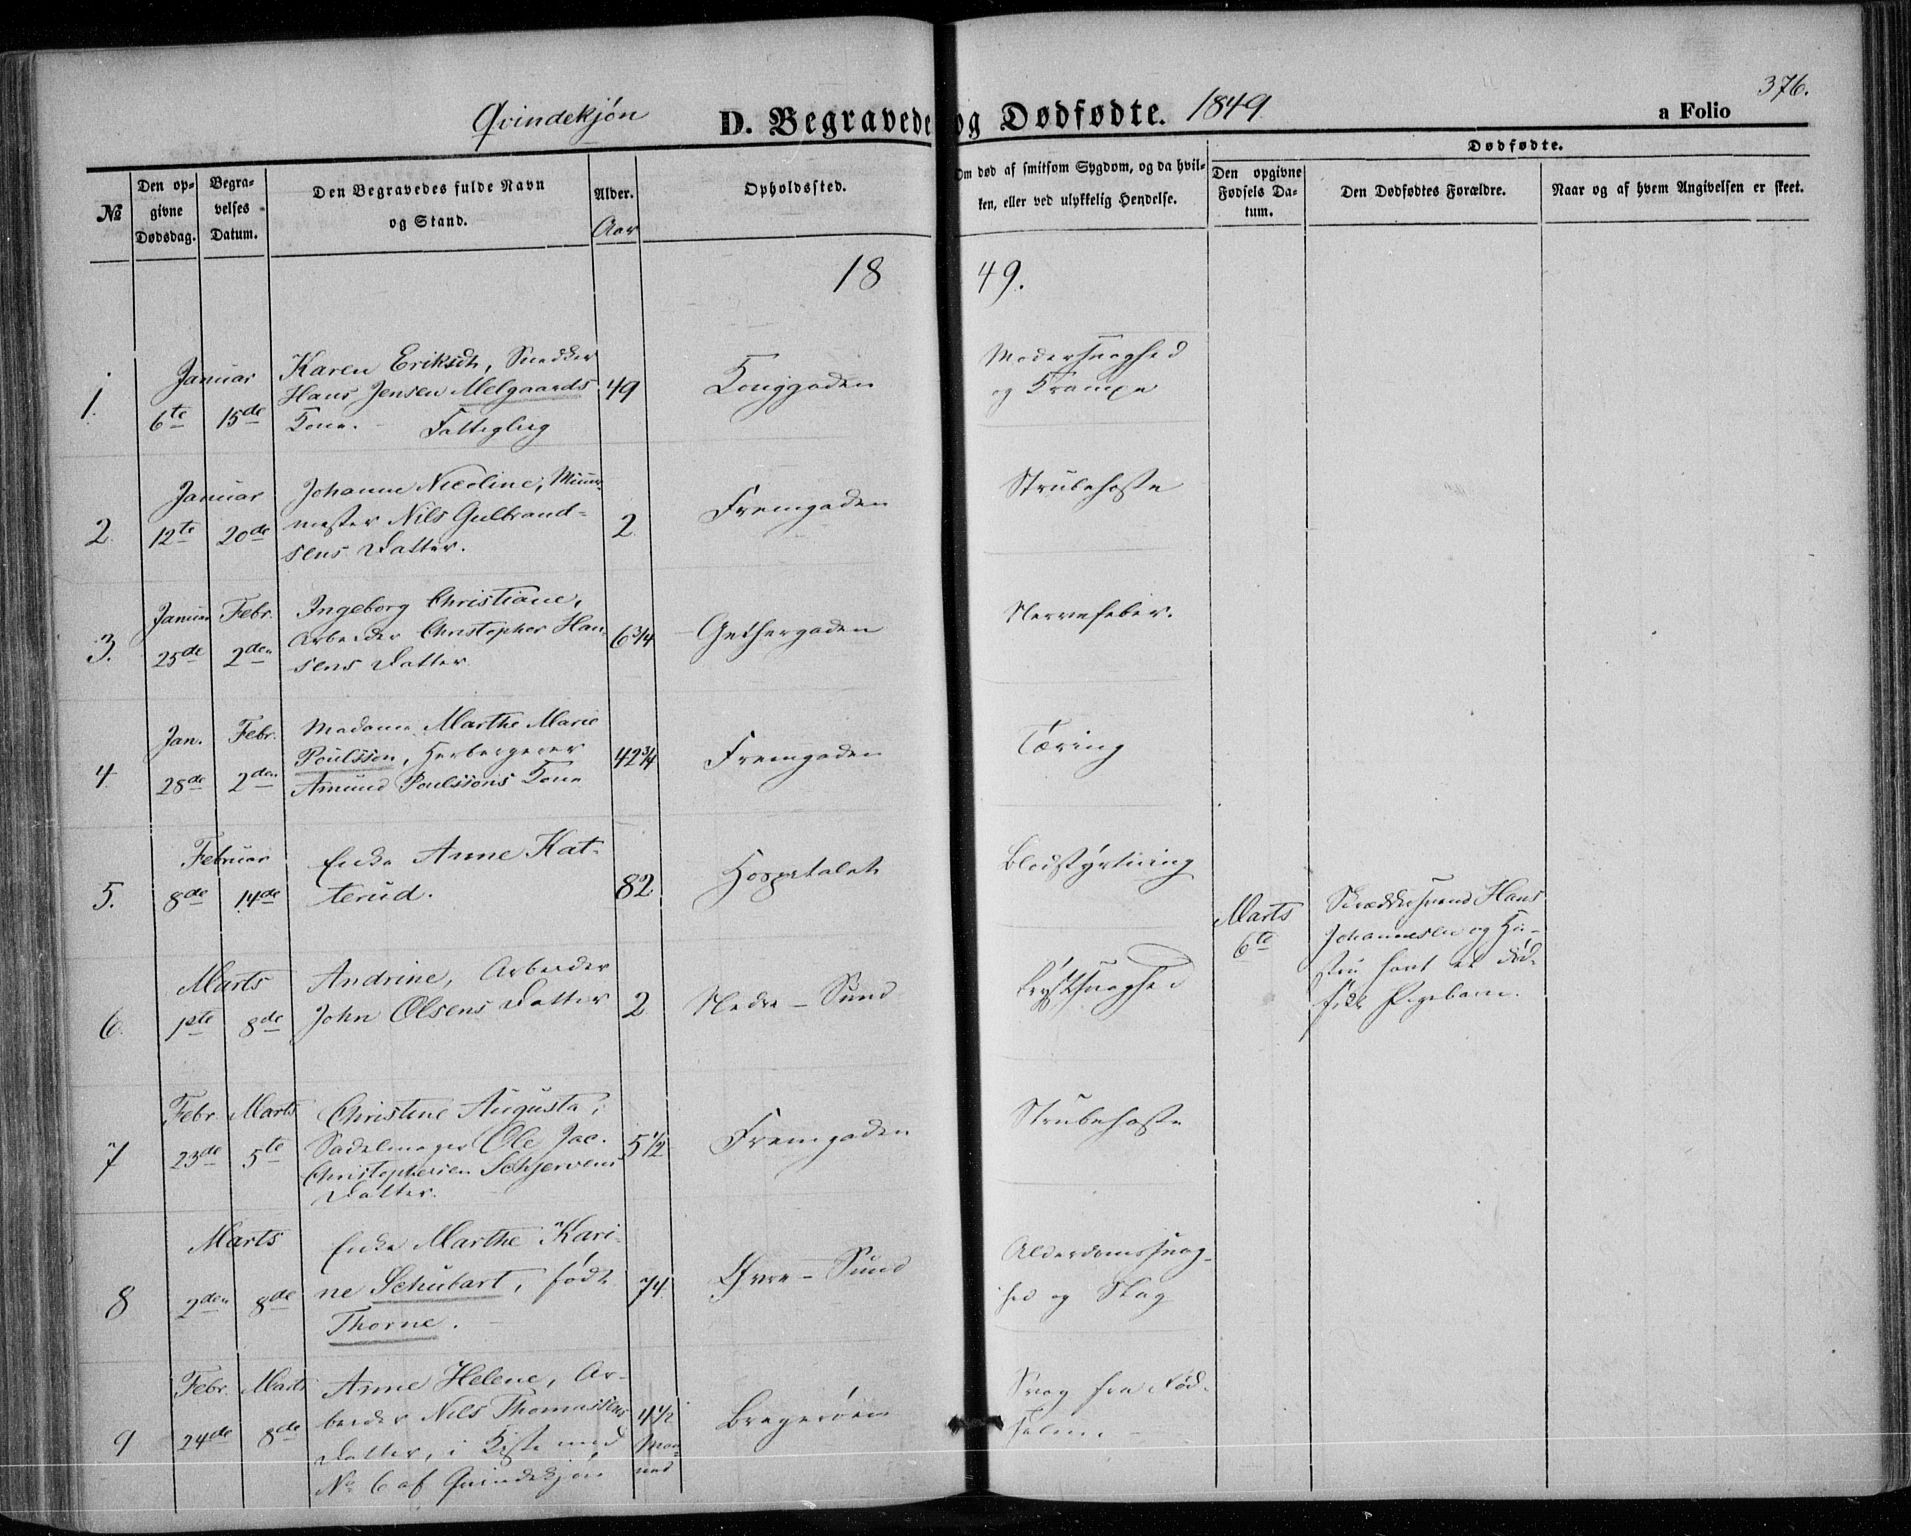 Qvindekjön D. Begravede og Dødfødte. 1849 a Folio 376.
Dødfødte.
No
Den opgivne Dødsdag.
Begravelses Datum.
Den Begravedes fulde Navn og Stand.
Alder.
Aar
Opholdssted.
Om død af smitsom Sygdom, og da hvilken, eller ved ulykkelig Hendelse.
Den opgivne Fødsels Datum.
Den Dødfødtes Forældre.
Naar og af hvem Angivelsen er skeet.
1849.
1.
Januar
6te 15de
Karen Eriksdt, Snedker
Hans Jensen Melgaards
Kone. - Fattiglug
49
Konggaden
Modersvaghed
og Krampe
2.
Januar
12te 20de
Johanne Nicoline, Muur-
mester Nils Gulbrand-
sens Datter.
2
Fremgaden
Strubehoste
3.
Januar Febr.
25de 2den
Ingeborg Christiane,
Arbeider Christopher Han-
sens Datter
6 3/4
Gethergaden
Nervefeber.
4.
Jan. Febr.
28de 2den
Madame Marthe Marie
Poulsson, Herbergerer
Amund Poulssons Kone
42 3/4
Fremgaden
Tæring
5.
Februar
8de 14de
Enke Anne Kat-
terud.
82
Hospitalet
Blodstyrtning
6.
Marts
1ste 8de
Andrine, Arbeider
John Olsens Datter
2
Nedre - Sund
Brystsvaghed
Marts
6te
Skræddersvend Hans
Johannesen og Hu-
stru havt et død-
født Pigebarn.
7
Febr. Marts
23de 5te
Christine Augusta,
Sadelmager Ole Jac.
Christophersen Schjervens
Datter.
5 1/2
Fremgaden
Strubehoste
8
Marts
2den 8de
Enke Marthe Kari-
ne Schubart, født
Thorne.
74
Øvre - Sund
Alderdomssvag-
hed og Slag
9
Febr. Marts
24de 8de
Anne Helene, Ar-
beider Nils Thomassens
Datter, i Kiste med
No 6 af Qvindekjön
4 1/2
Maa-
ned
Bragerøen
Svag fra Fød-
selen.